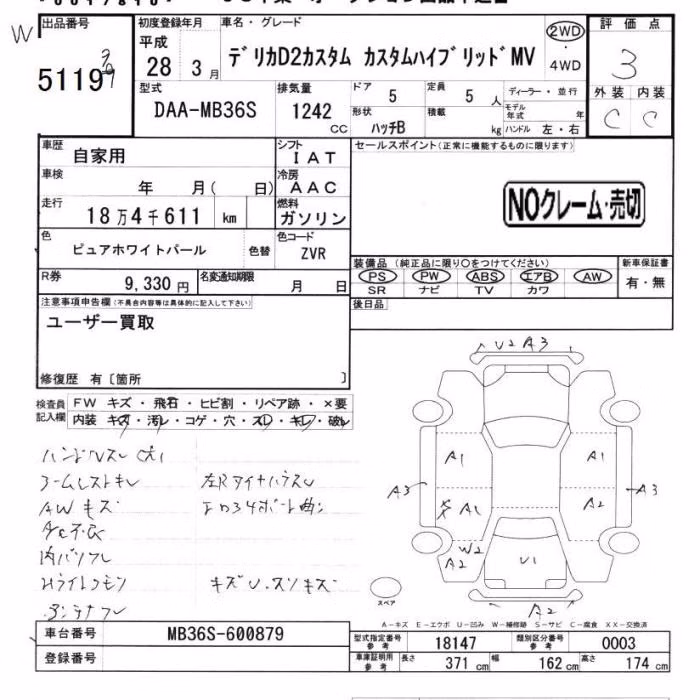 出品番号 初度登録年月 車名・グレード 2WD 評価点
W 平成 デリカD2カスタム カスタムハイブリッドMV ・ 3
51197 28 3月 4WD
型式 排気量 ドア 定員 ディーラー・並行 外装 内装
DAA-MB36S 1242 5 5人 モデル年式 年 C C
CC 形状 ハッチB 積載 kg ハンドル 左・右
車歴 自家用 シフト IAT セールスポイント(正常に機能するものに限ります)
車検 年 月( 日) 冷房 AAC
走行 18万4千611 km 燃料 ガソリン NOクレーム・売切
色 ピュアホワイトパール 色替 色コード ZVR
装備品 (純正品に限り○をつけてください) 新車保証書
R券 9,330円 名変通知期限 月 日 PS PW ABS エアB AW 有・無
SR ナビ TV カワ
注意事項申告欄(不具合内容等は具体的に記入して下さい) 後日品
ユーザー買取
修復歴 有〔箇所 〕
U2 A3
検査員 FW キズ・飛石・ヒビ割・リペア跡・×要
記入欄 内装 キズ・汚レ・コゲ・穴・スレ・キレ・破レ
ハンドルスレ
アームレストキレ 左Rタイヤハウスム
AWキズ エロ34ポート曲ン
A1 A1
A3 A1 A2 A3
内バリフレ
W2
A2 U1
キズU.スソキズ
スペア
アンテナフレ A2
A-キズ E-エクボ U-凹み W-補修跡 S-サビ C-腐食 XX-交換済
車台番号 MB36S-600879 型式指定番号 参考 18147 類別区分番号 参考 0003
登録番号 車庫証明用 参考 長さ 371cm 幅 162cm 高さ 174cm